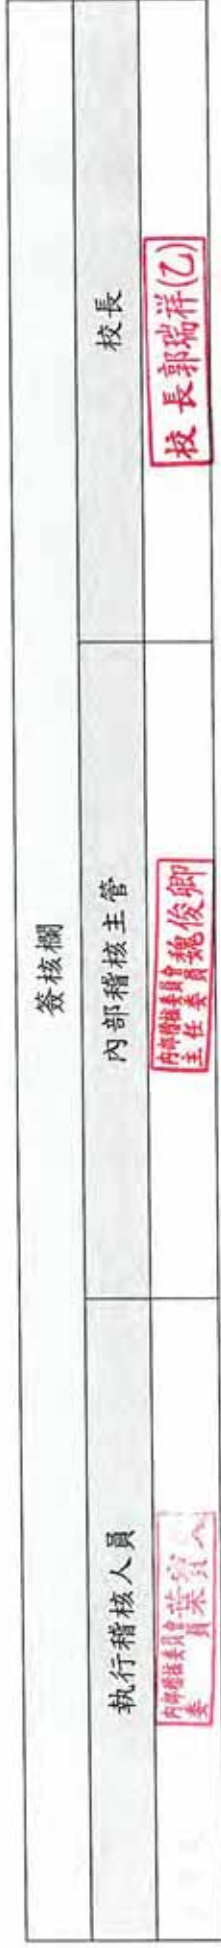 簽核欄
執行稽核人員
內部稽核主管
校長
內部稽核委員會
委員葉
內部稽核委員會
主任委員魏俊卿
校長郭瑞祥(乙)